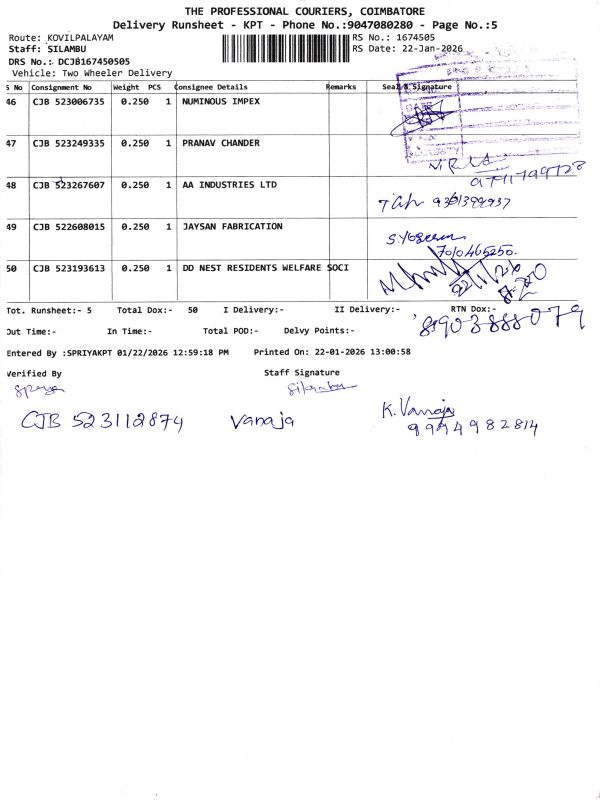 THE PROFESSIONAL COURIERS, COIMBATORE
Delivery Runsheet - KPT - Phone No.:9047080280 - Page No.:5
Route: KOVILPALAYAM RS No.: 1674505
Staff: SILAMBU RS Date: 22-Jan-2026
DRS No.: DCJB167450505
Vehicle: Two Wheeler Delivery
S No Consignment No Weight PCS Consignee Details Remarks Seal & Signature
46 CJB 523006735 0.250 1 NUMINOUS IMPEX
47 CJB 523249335 0.250 1 PRANAV CHANDER
9711799728
48 CJB 523267607 0.250 1 AA INDUSTRIES LTD
49 CJB 522608015 1 0.250 JAYSAN FABRICATION
7010465250.
50 CJB 523193613 0.250 1 DD NEST RESIDENTS WELFARE SOCI
22/1/26
Tot. Runsheet:- 5 Total Dox:- 50 I Delivery:- II Delivery:- RTN Dox:-
8903888079
Out Time:- In Time:- Total POD:- Delvy Points:-
Entered By :SPRIYAKPT 01/22/2026 12:59:18 PM Printed On: 22-01-2026 13:00:58
Verified By Staff Signature
Silambu
CJB 523112874 Vanaja K. Vanaja
9994982814